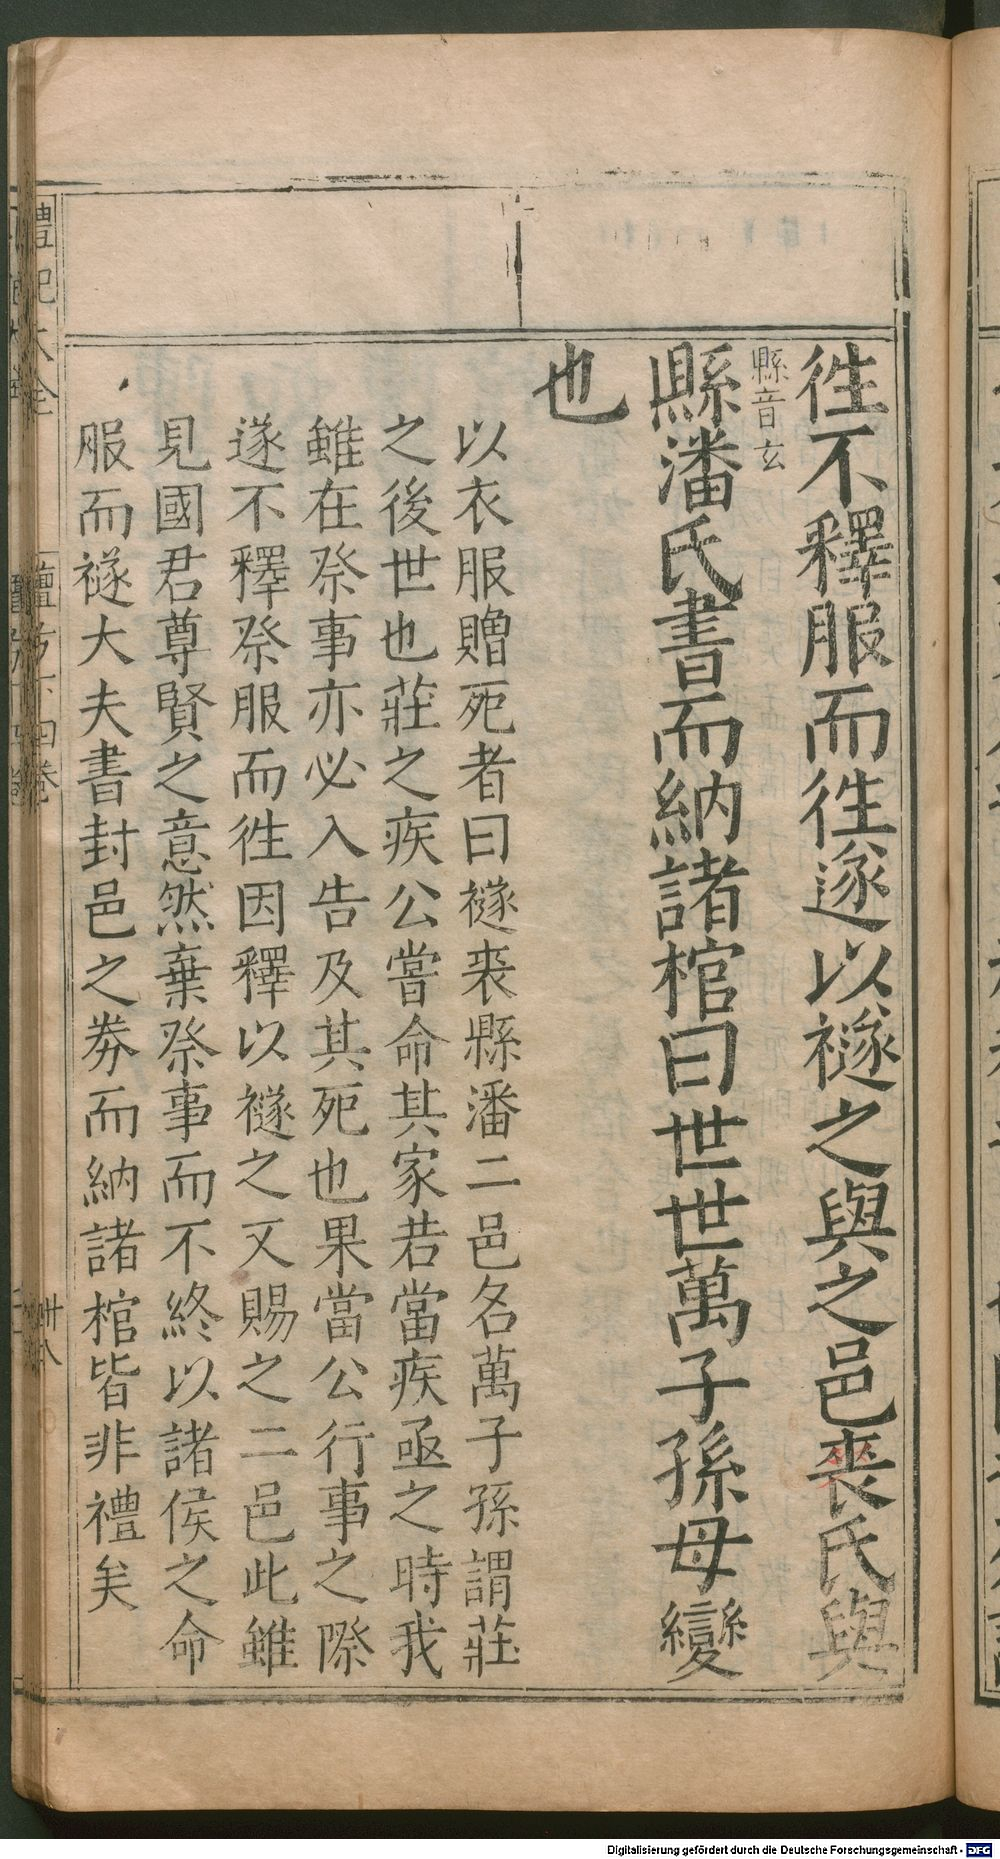 徃不釋服而徃遂以襚之與之邑裘氏與
縣音玄
縣潘氏書而納諸棺曰世世萬子孫毋變
也
以衣服贈死者曰襚裘縣潘二邑名萬子孫謂莊
之後世也莊之疾公嘗命其家若當疾亟之時我
雖在祭事亦必入告及其死也果當公行事之際
遂不釋祭服而徃因釋以襚之又賜之二邑此雖
見國君尊賢之意然棄祭事而不終以諸侯之命
服而襚大夫書封邑之券而納諸棺皆非禮矣
禮記大全
檀弓下四卷
卌八
Digitalisierung gefördert durch die Deutsche Forschungsgemeinschaft - DFG